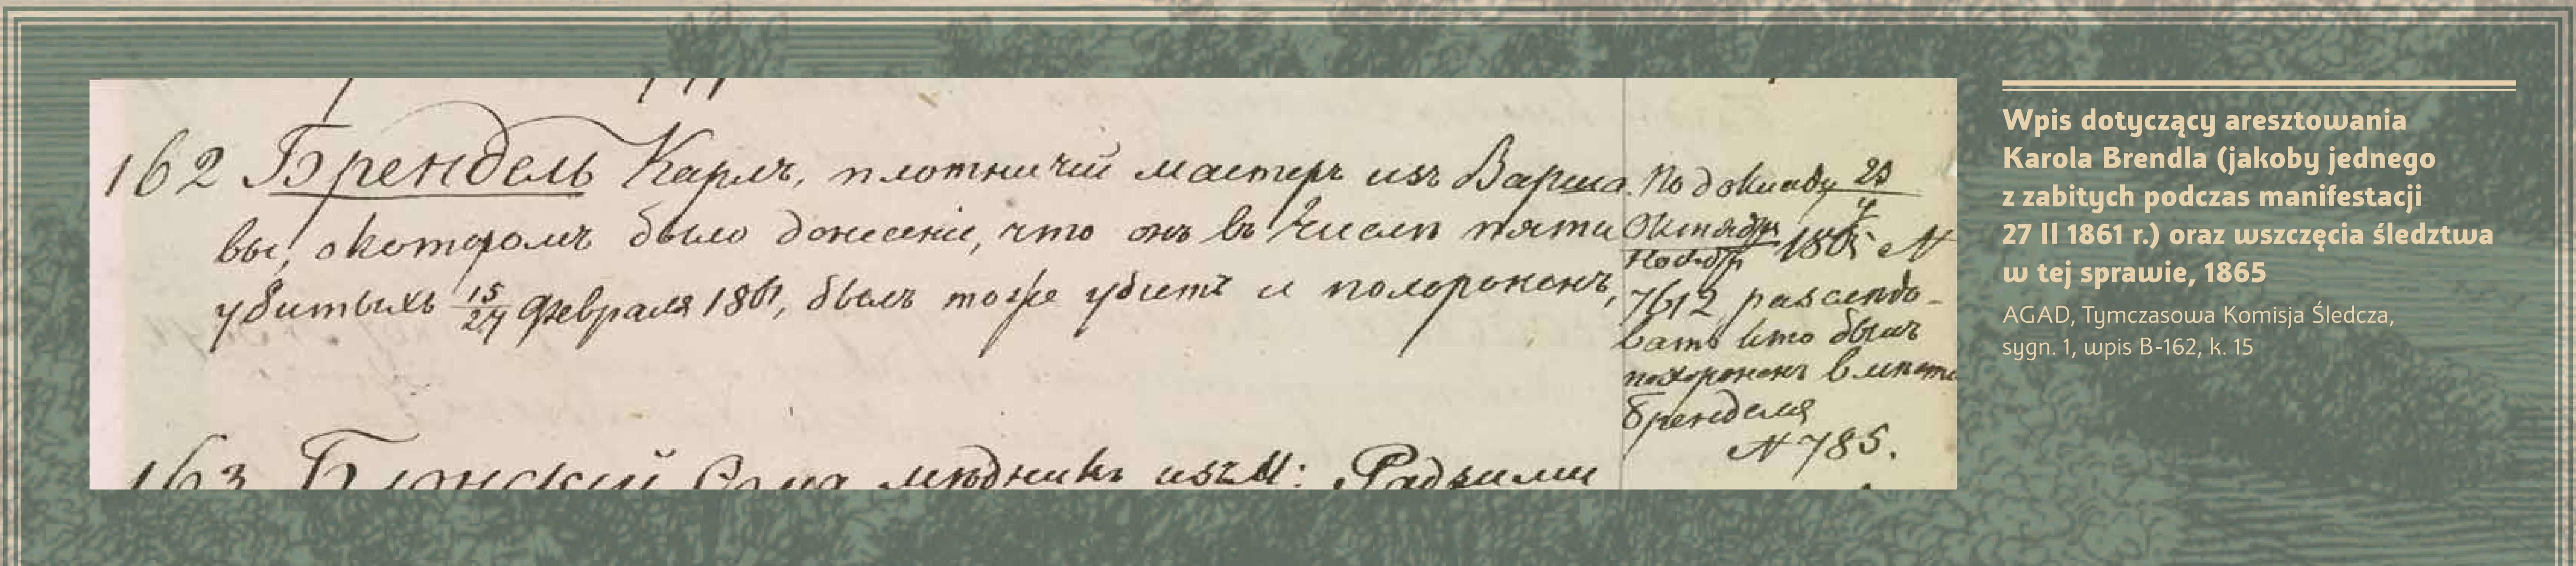 162 Брендель Карлъ, плотничій мастеръ изъ Варша
вы, о которомъ было донесеніе, что онъ въ числѣ пяти
убитыхъ 15/27 Февраля 1861, былъ тоже убитъ и похороненъ,
По докладу 23
Октября
Ноября 1865 N
7612 разслѣдо-
вать кто былъ
похороненъ вмѣсто
Бренделя
N 785.
163 Блонскій мѣдникъ изъ М: Радзими
Wpis dotyczący aresztowania
Karola Brendla (jakoby jednego
z zabitych podczas manifestacji
27 II 1861 r.) oraz wszczęcia śledztwa
w tej sprawie, 1865
AGAD, Tymczasowa Komisja Śledcza,
sygn. 1, wpis B-162, k. 15